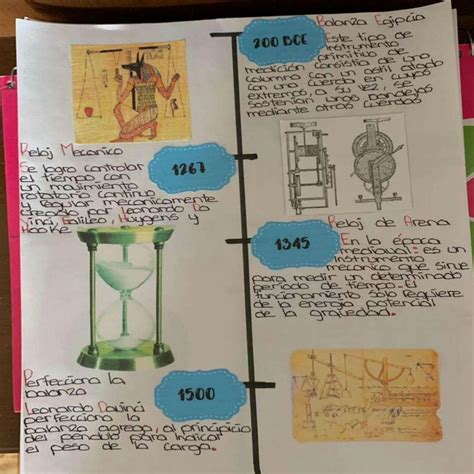 200 BCE
Balanza Egipcia
Este tipo de
instrumento
primitivo de
medición consistía de una
columna con un astil atado
con una cuerda en cuyos
extremos, a su vez, se
sostenían unos pandejos
mediante otras cuerdas
Reloj Mecanico
1267
Se logro controlar
el tiempo con
un movimiento
rotatorio continuo
y regular mecanicamente
creada por Leonardo Da
Vinci, Galileo, Huygens y
Hooke
Reloj de Arena
1345
En la época
medieval: es un
instrumento
mecanico que sirve
para medir un determinado
periodo de tiempo. El
funcionamiento sólo requiere
de la energía potencial
de la gravedad.
Perfecciona la
balanza
1500
Leonardo Davinci
perfecciono la
balanza agrego, al principio
del pendulo para indicar
el peso de la carga.